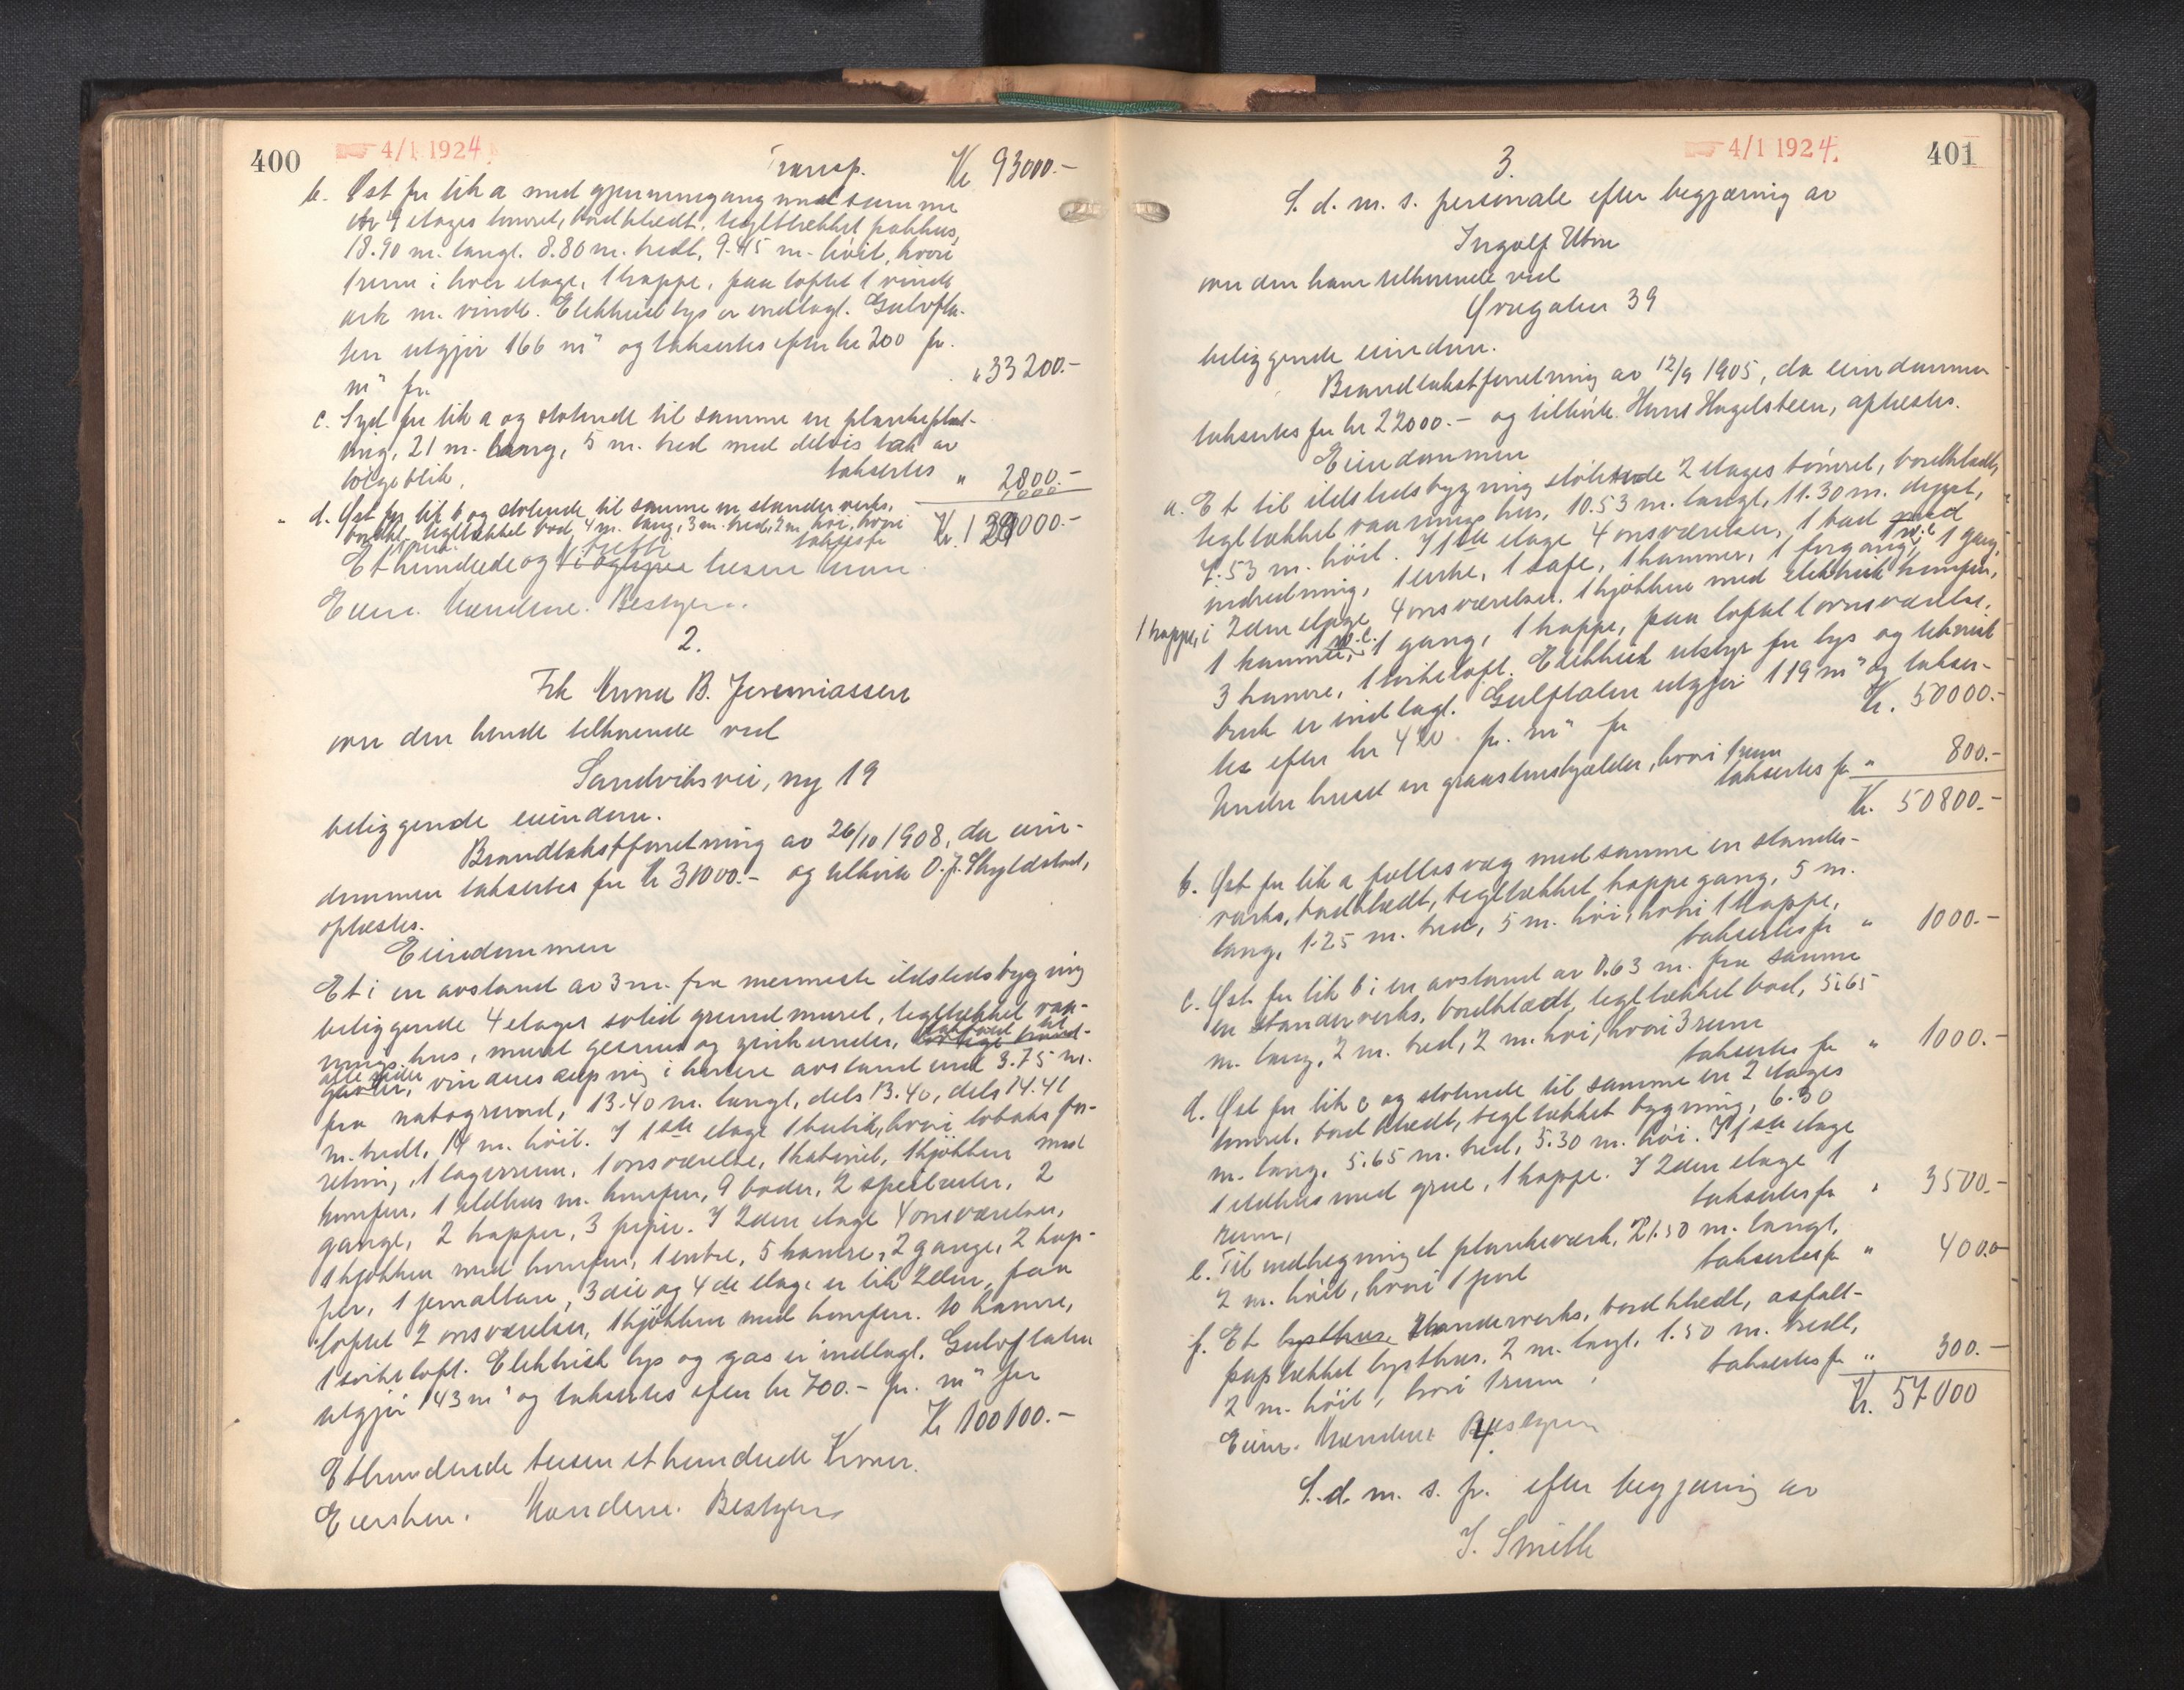 400
4/1 1924.
Transp. Kr 93000.-
b. Øst for lit a med gjennemgang med samme
en 4 etages tømret, bordklædt, tegltækket pakhus,
18.90 m. langt. 8.80 m. bredt, 9.45 m. høit, hvori
1 rum i hver etage, 1 trappe, paa loftet 1 vinde
ark m. vinde. Elektrisk lys er indlagt. Gulvfla-
ten utgjør 166 m² og takseres efter kr 200 pr.
m² for " 33200.-
c. Syd for lit a og støtende til samme en planke plat-
ting, 21 m. lang, 5 m. bred med delvis tak av
bølgeblik, takseres " 2800.-
d. Øst for lit b og støtende til samme en standerverks,
bordkl. tegltækket bod, 4 m. lang, 3 m. bred, 2 m. høi, hvori
1 rum. takseres for 1000
Kr. 130000.-
Et hundrede og tretti tusen kroner
Eieren. Mændene. Bestyreren.
2.
Frk Anna B. Jeremiassen
over den hende tilhørende ved
Sandviksvei, ny 19
beliggende eiendom.
Brandtakstforretning av 26/10 1908, da eien-
dommen takseres for kr 31000.- og tilhørte O. J. Skyldstad,
oplæstes.
Eiendommen
Et i en avstand av 3 m. fra nærmeste ildstedsbygning
beliggende 4 etages solid grundmuret, tegltækket vaa-
ningshus, muret gesims og zinkrender,
alle sider, vinduesaapning i kortere avstand end 3.75 m.
fra nabogrund, 13.40 m. langt, dels 13.40, dels 14.41
m. bredt, 14 m. høit. I 1ste etage 1 butik, hvori tobaksfor-
retning, 1 lagerrum, 1 onsværelse, 1 kabinet, 1 kjøkken med
komfur, 1 ildhus m. komfur, 9 boder, 2 speilruder, 2
gange, 2 trapper, 3 piper. I 2den etage 4 onsværelser,
1 kjøkken med komfur, 1 entre, 5 kamre, 2 gange, 2 trap-
per, 1 jernaltan, 3die og 4de etage er lik 2den, paa
loftet 2 onsværelser, 1 kjøkken med komfur. 10 kamre,
1 tørkeloft. Elektrisk lys og gas er indlagt. Gulvflaten
utgjør 143 m² og takseres efter kr 700.- pr. m² for
Kr 100100.-
Ethundrede tusen et hundrede Kroner.
Eiersken. Mændene. Bestyreren
401
4/1 1924.
3.
S. d. m. s. personale efter begjæring av
Ingolf Utne
over den ham tilhørende ved
Øvregaten 39
beliggende eiendom.
Brandtakstforretning av 12/9 1905, da eiendommen
takseres for kr 22000.- og tilhørte Hans Hagelsteen, oplæstes.
Eiendommen
a. Et til ildstedsbygning støtende 2 etages tømret, bordklædt,
tegltækket vaaningshus, 10.53 m. langt, 11.30 m. dypt,
7.53 m. høit. I 1ste etage 4 onsværelser, 1 bad med
indredning, 1 entre, 1 safe, 1 kammer, 1 forgang, 1 w.c. 1 gang,
1 trappe, i 2den etage 4 onsværelser. 1 kjøkken med elektrisk komfur,
1 kammer, 1 w.c. 1 gang, 1 trappe, paa loftet 1 ovnsværelse,
3 kamre, 1 tørkeloft. Elektrisk utstyr for lys og teknisk
bruk er indlagt. Gulvflaten utgjør 119 m² og takser-
es efter kr 420 pr. m² for Kr. 50000.-
Under huset en graastenskjælder, hvori 1 rum
takseres for " 800.-
Kr. 50800.-
b. Øst for lit a fælles væg med samme en stander-
verks, bordklædt, tegltækket trappegang, 5 m.
lang, 1.25 m. bred, 5 m. høi, hvori 1 trappe,
takseres for " 1000.-
c. Øst for lit b i en avstand av 0.63 m. fra samme
en standerverks, bordklædt, tegltækket bod, 5.65
m. lang, 2 m. bred, 2 m. høi, hvori 3 rum
takseres for " 1000.-
d. Øst for lit c og støtende til samme en 2 etages
tømret, bordklædt, tegltækket bygning, 6.30
m. lang, 5.65 m. bred, 5.30 m. høi. I 1ste etage
1 ildhus med grue, 1 trappe. I 2den etage 1
rum, takseres for " 3500.-
e. Til indhegning et plankeværk, 21.50 m. langt,
2 m. høit, hvori 1 port takseres for " 400.-
f. Et lysthus, standerverks, bordklædt, asfalt-
paptækket lysthus. 2 m. langt, 1.50 m. bredt,
2 m. høit, hvori 1 rum, takseres for " 300.-
Kr. 57000
Eieren. Mændene Bestyreren
4.
S. d. m. s. p. efter begjæring av
I. Smith